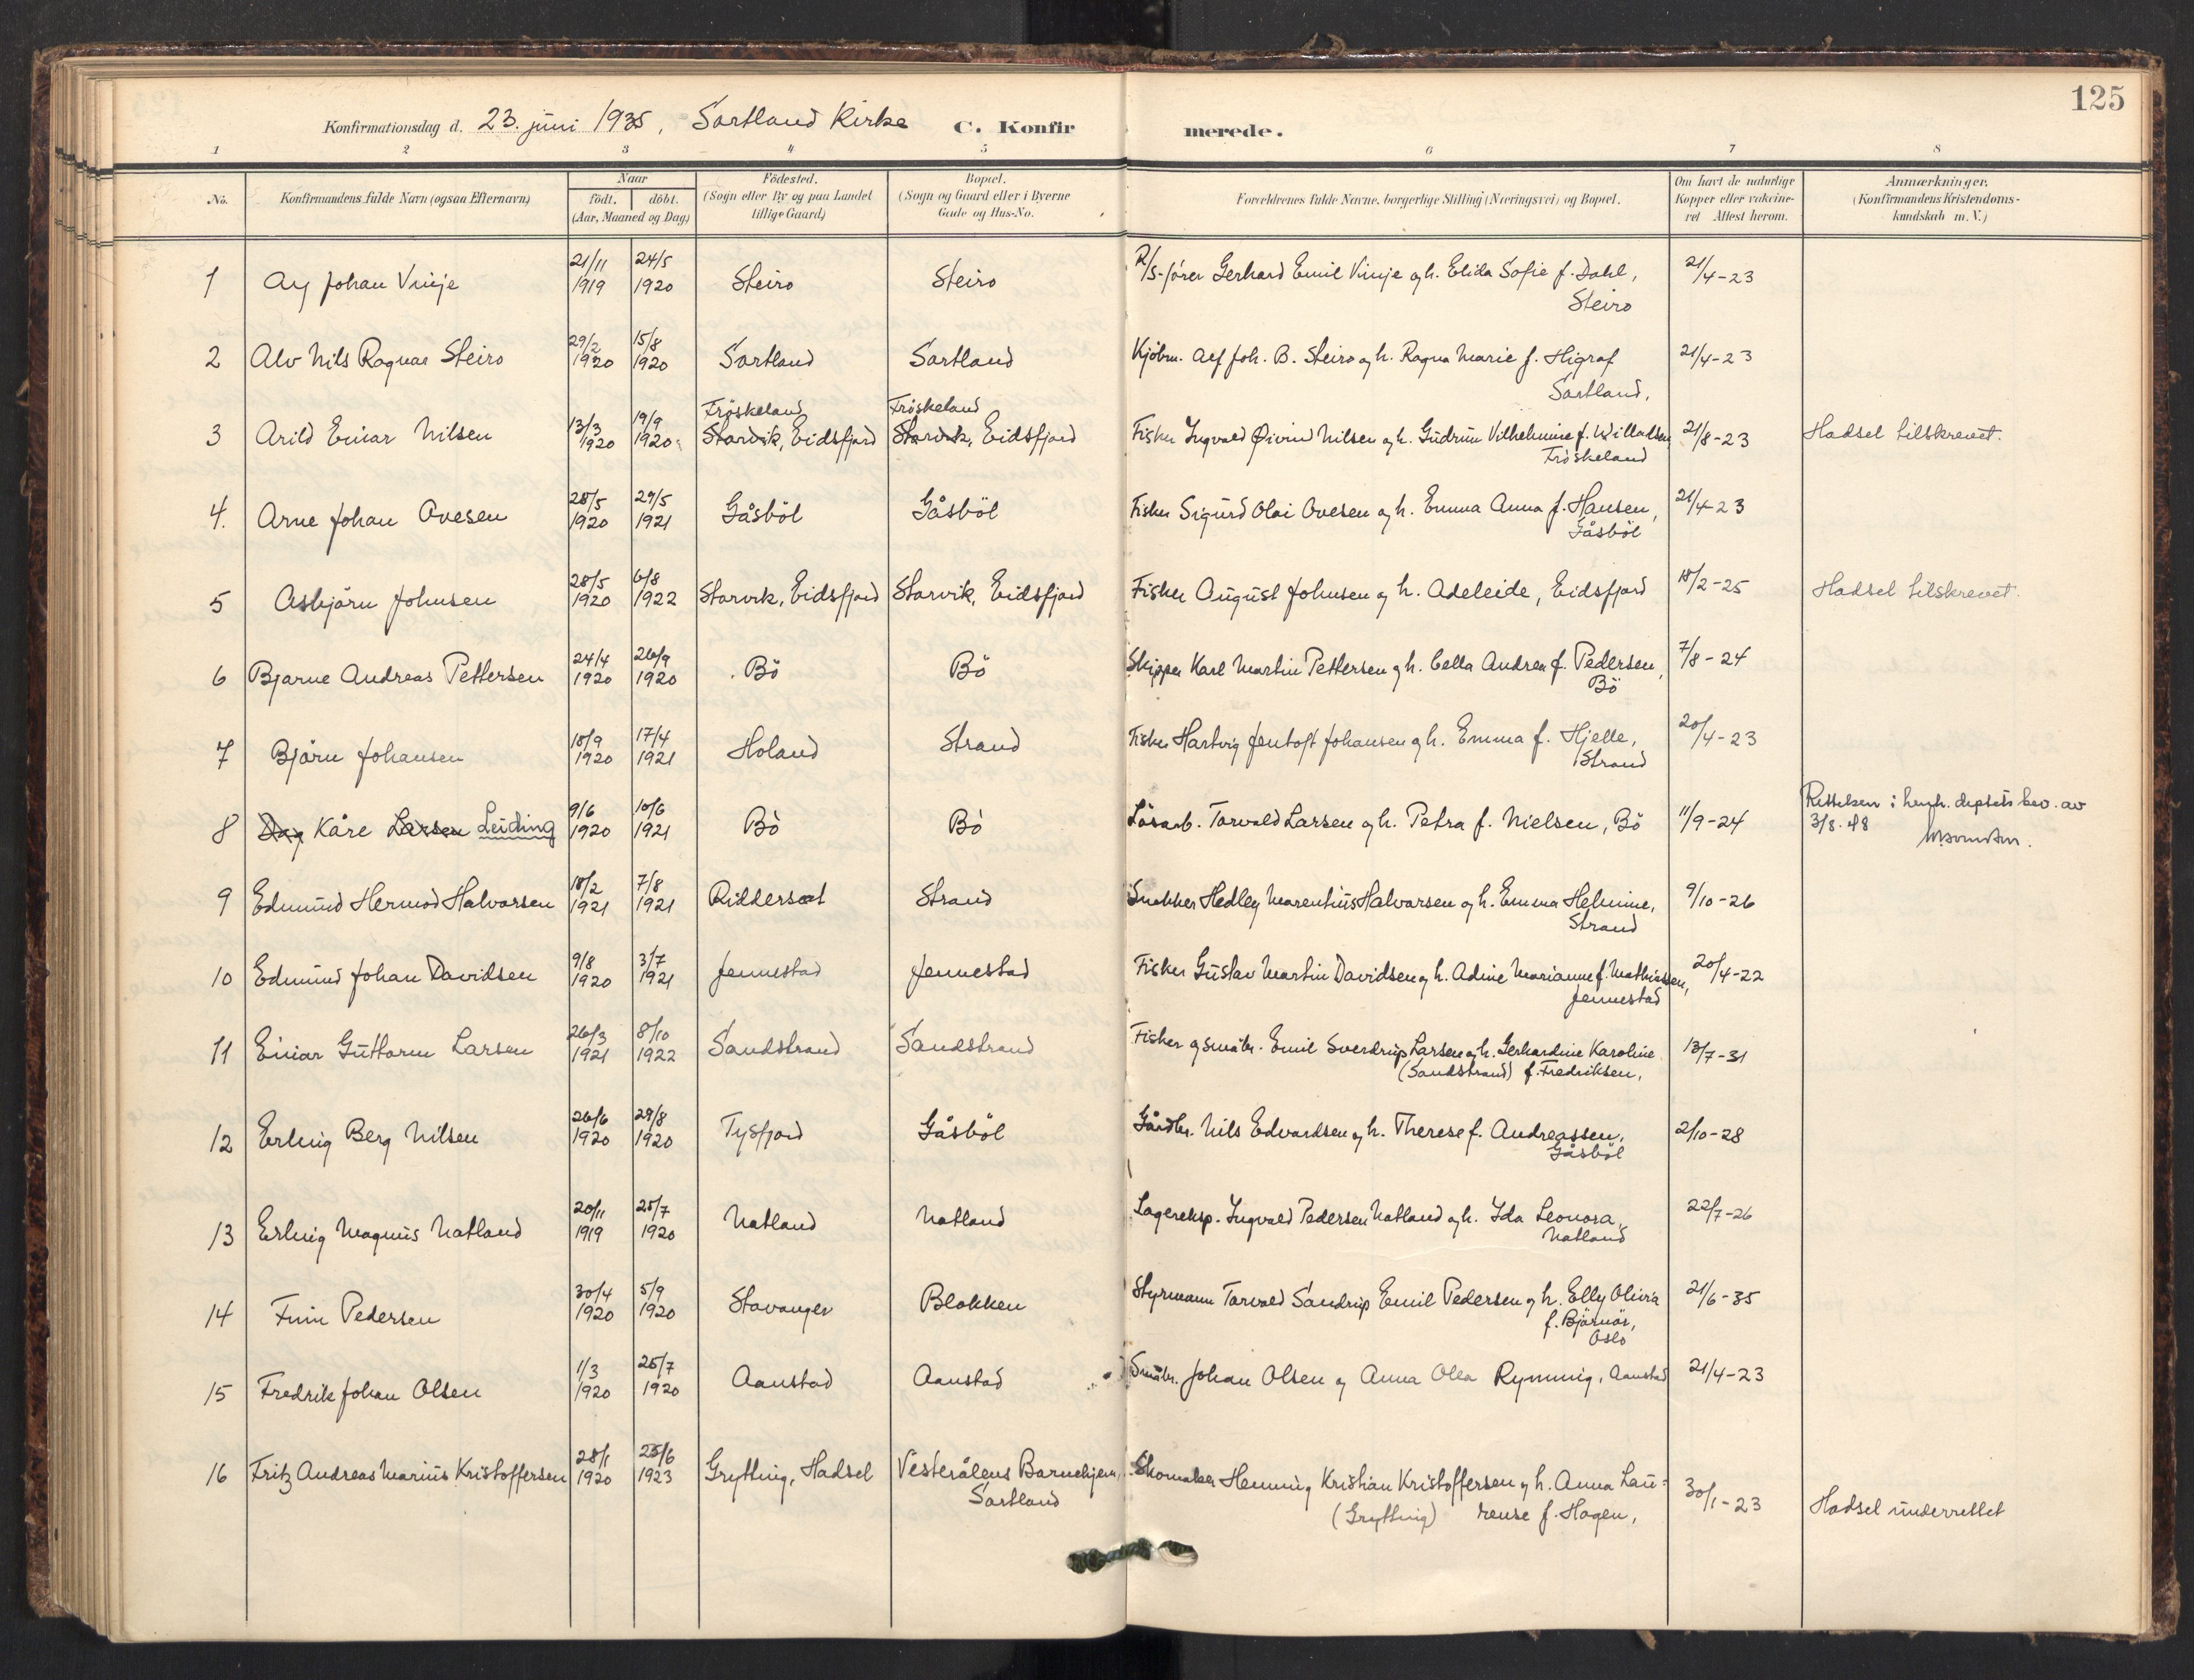 125
Konfirmationsdag d. 23. juni 1935, Sortland Kirke C. Konfirmerede.
1 2 3 4 5 6 7 8
No. Konfirmandens fulde Navn (ogsaa Efternavn) Naar født. døbt. (Aar, Maaned og Dag) Fødested. (Sogn eller By og paa Landet tillige Gaard) Bopæl. (Sogn og Gaard eller i Byerne Gade og Hus-No. Forældrenes fulde Navne, borgerlige Stilling (Næringsvei) og Bopæl. Om havt de naturlige Kopper eller vakcineret Attest herom. Anmærkninger. (Konfirmandens Kristendomskundskab m. V.)
1 Alf Johan Vinje 21/11 1919 24/5 1920 Steiro Steiro R/S-fører Gerhard Emil Vinje og h. Elida Sofie f. Dahl, 21/4-23
Steiro
2 Alv Nils Ragnar Steiro 29/2 1920 15/8 1920 Sortland Sortland Kjøbm. Alf Joh. B. Steiro og h. Ragna Marie f. Higraf 21/4-23
Sortland,
Frøskeland Frøskeland
3 Arild Einar Nilsen 13/3 1920 19/9 1920 Storvik, Eidsfjord Storvik, Eidsfjord Fisker Ingvald Øivind Nilsen og h. Gudrun Vilhelmine f. Willadsen, 21/8-23 Hadsel tilskrevet.
Frøskeland
4. Arne Johan Ovesen 28/5 1920 29/5 1921 Gåsböl Gåsböl Fisker Sigurd Olai Ovesen og h. Emma Anna f. Hansen, 21/4-23
Gåsböl
5 Asbjörn Johnsen 28/5 1920 6/8 1922 Storvik, Eidsfjord Storvik, Eidsfjord Fisker August Johnsen og h. Adeleide, Eidsfjord 18/2-25 Hadsel tilskrevet.
6 Bjarne Andreas Pettersen 24/4 1920 26/9 1920 Bö Bö Skipper Karl Martin Pettersen og h. Cella Andrea f. Pedersen, 7/8-24
Bö
7 Björn Johansen 18/9 1920 17/4 1921 Holand Strand Fisker Hartvig Jentoft Johansen og h. Emma f. Hjelle, 20/4-23
Strand
8 Dag Kåre Larsen Leiding 9/6 1920 10/6 1921 Bö Bö Lösarb. Torvald Larsen og h. Petra f. Nielsen, Bö 11/9-24 Rettelsen i henh. deptets bev. av
3/8.48
9 Edmund Hermod Halvorsen 18/2 1921 7/8 1921 Riddersæt Strand Snekker Hedley Marentius Halvorsen og h. Emma Helmine, 9/10-26
Strand
10 Edmund Johan Davidsen 9/8 1920 3/7 1921 Jennestad Jennestad Fisker Gustav Martin Davidsen og h. Adine Marianne f. Mathiassen, 20/4-22
Jennestad
11 Einar Guttorm Larsen 26/3 1921 8/10 1922 Sandstrand Sandstrand Fisker og småbr. Emil Sverdrup Larsen og h. Gerhardine Karoline 13/7-31
(Sandstrand) f. Fredriksen,
12 Erling Berg Nilsen 26/6 1920 29/8 1920 Tysfjord Gåsböl Gårdbr. Nils Edvardsen og h. Therese f. Andreassen, 2/10-28
Gåsböl
13 Erling Magnus Natland 20/11 1919 25/7 1920 Natland Natland Lagereksp. Ingvald Pedersen Natland og h. Ida Leonora, 22/7-26
Natland
14 Finn Pedersen 30/4 1920 5/9 1920 Stavanger Blokken Styrmann Torvald Sandrup Emil Pedersen og h. Elly Olivia 21/6-35
f. Björnör,
Oslo
15 Fredrik Johan Olsen 1/3 1920 25/7 1920 Aanstad Aanstad Småbr. Johan Olsen og Anna Olea Rynning, Aanstad 21/4-23
16 Fritz Andreas Marius Kristoffersen 28/1 1920 25/6 1923 Grytting, Hadsel Vesterålens Barnehjem, Skomaker Henning Kristian Kristoffersen og h. Anna Lau-
Sortland (Grytting) rense f. Hagen, 30/1-23 Hadsel underrettet